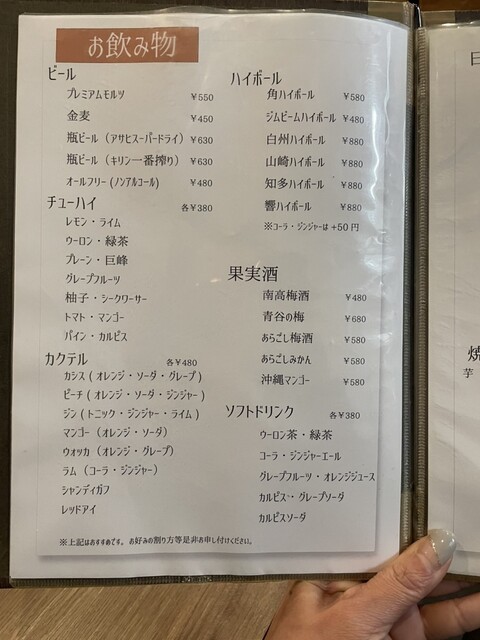 お飲み物
ビール
プレミアムモルツ ¥550
金麦 ¥450
瓶ビール（アサヒスーパードライ）¥630
瓶ビール（キリン一番搾り）¥630
オールフリー(ノンアルコール) ¥480
チューハイ 各¥380
レモン・ライム
ウーロン・緑茶
プレーン・巨峰
グレープフルーツ
柚子・シークワーサー
トマト・マンゴー
パイン・カルピス
カクテル 各¥480
カシス(オレンジ・ソーダ・グレープ)
ピーチ(オレンジ・ソーダ・ジンジャー)
ジン(トニック・ジンジャー・ライム)
マンゴー（オレンジ・ソーダ）
ウォッカ（オレンジ・グレープ）
ラム（コーラ・ジンジャー）
シャンディガフ
レッドアイ
ハイボール
角ハイボール ¥580
ジムビームハイボール ¥480
白州ハイボール ¥880
山崎ハイボール ¥880
知多ハイボール ¥880
響ハイボール ¥880
※コーラ・ジンジャーは+50円
果実酒
南高梅酒 ¥480
青谷の梅 ¥680
あらごし梅酒 ¥580
あらごしみかん ¥580
沖縄マンゴー ¥580
ソフトドリンク 各¥380
ウーロン茶・緑茶
コーラ・ジンジャーエール
グレープフルーツ・オレンジジュース
カルピス・グレープソーダ
カルピスソーダ
※上記はおすすめです。お好みの割り方等是非お申し付けください。
日
焼
芋